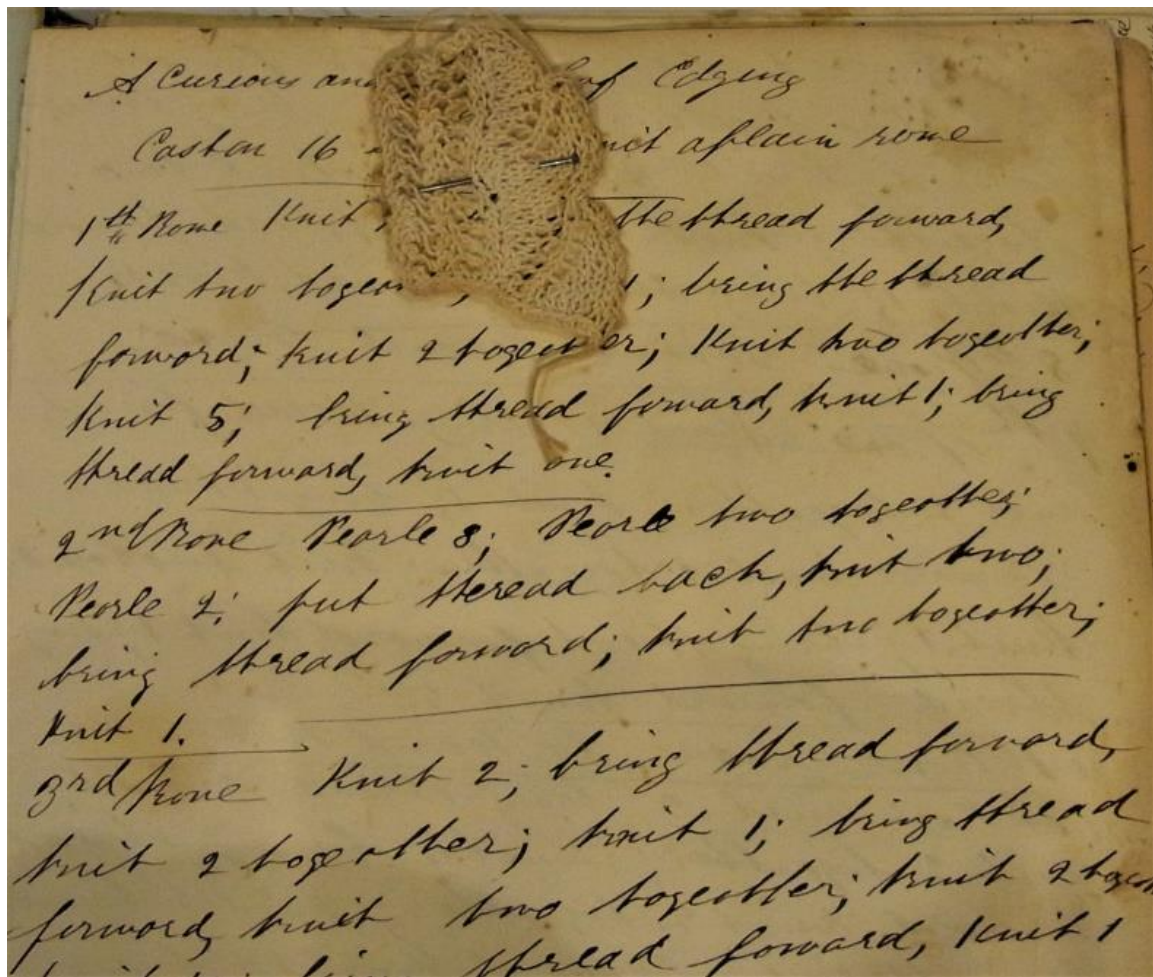 A Curious and Leaf Edging
Caston 16 knit aplain rowe
1th Rowe Knit the thread forward,
Knit two together, 1; bring the thread
forward; knit 2 together; Knit two togeather;
Knit 5; bring thread forward, knit 1; bring
thread forward, knit one.
2nd Rowe Pearle 8; Pearle two togeather;
Pearle 2; put theread back, knit two;
bring thread forward; knit two togeather;
Knit 1.
3rd Rowe Knit 2; bring thread forward,
knit 2 togeather; knit 1; bring thread
forward, knit two togeather; knit 2
bring thread forward, Knit 1